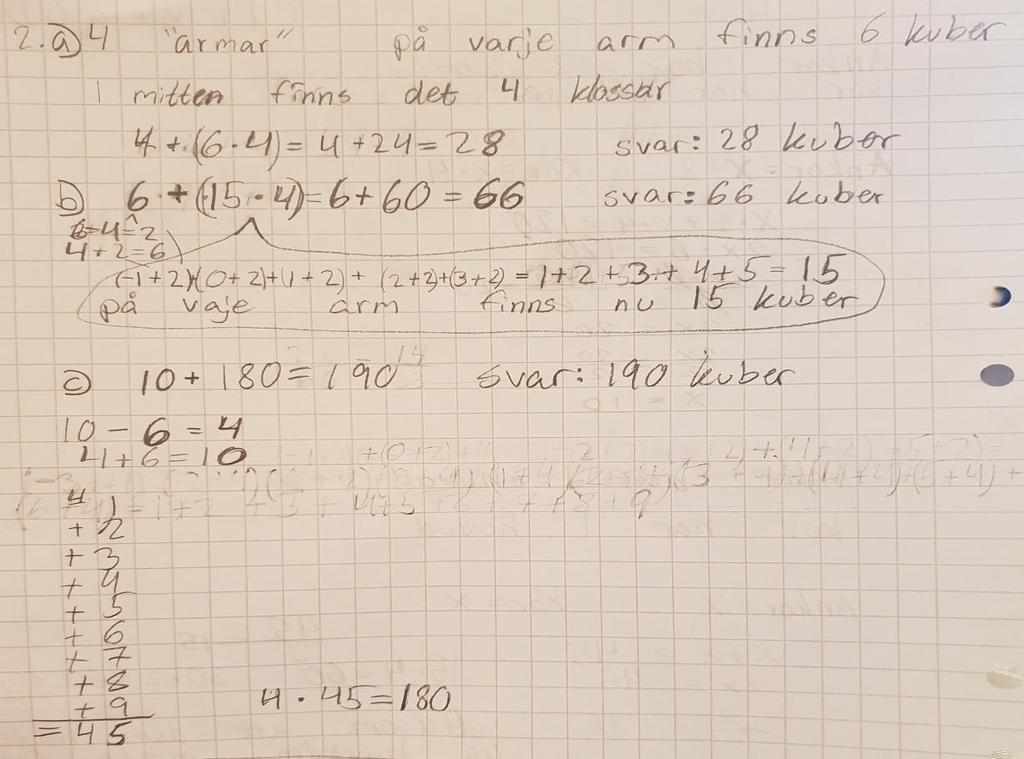 2. a) 4 "armar" på varje arm finns 6 kuber
I mitten finns det 4 klossar
4 + (6 · 4) = 4 + 24 = 28 svar: 28 kuber
b) 6 + (15 · 4) = 6 + 60 = 66 svar: 66 kuber
6 - 4 = 2
4 + 2 = 6
(-1 + 2) + (0 + 2) + (1 + 2) + (2 + 2) + (3 + 2) = 1 + 2 + 3 + 4 + 5 = 15
på vaje arm finns nu 15 kuber
c) 10 + 180 = 190 svar: 190 kuber
10 - 6 = 4
4 + 6 = 10
1
+ 2
+ 3
+ 4
+ 5
+ 6
+ 7
+ 8
+ 9
= 45
4 · 45 = 180